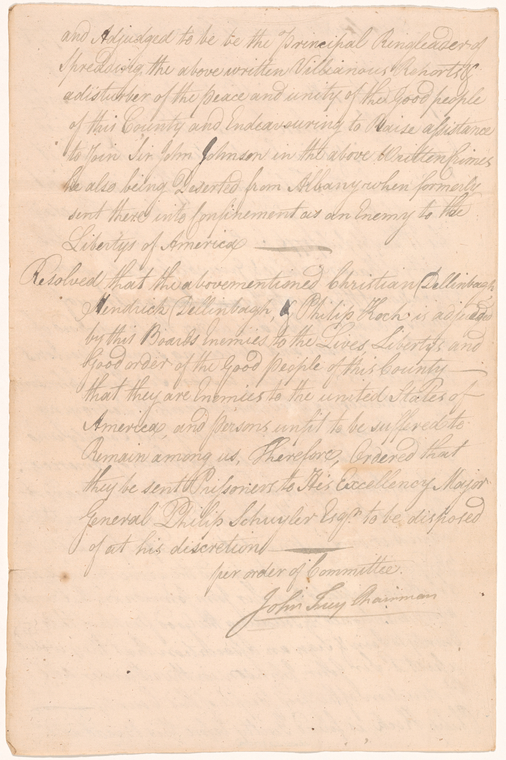 and Adjudged to be be the Principal Ringleader of
Spredding the above written Villianous Reports &
a disturber of the peace and unity of the Good people
of this County and Endeavouring to Raise assistance
to Join Sir John Johnson in the above Written Crimes
he also being Deserted from Albany when formerly
sent there into Confinement as an Enemy to the
Libertys of America
Resolved that the abovementioned Christian Dellinbagh
Hendrick Dellinbagh, & Philip Kock is adjudged
by this Board Enemies to the Lives, Libertys, and
Good order of the Good people of this County
that they are Enemies to the united States of
America, and persons unfit to be suffered to
Remain among us, Therefore, Ordered that
they be sent Prisoners to His Excellency Major
General Philip Schuyler Esqr. to be disposed
of at his discretion
per order of Committee
John Frey Chairman